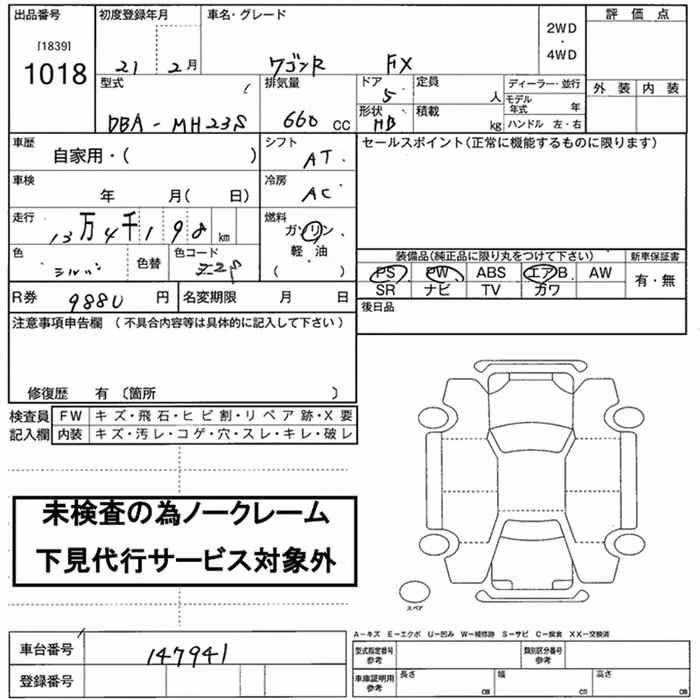 出品番号 初度登録年月 車名・グレード 2WD・4WD 評価点
[1839]
1018 21 2月 ワゴンR FX
型式 排気量 ドア 定員 ディーラー・並行 外装 内装
5 人 モデル年式 年
DBA-MH23S 660 CC 形状 HB 積載 kg ハンドル 左・右
車歴 シフト セールスポイント(正常に機能するものに限ります)
自家用・( ) AT
車検 冷房
年 月( 日) AC
走行 燃料
13万4千198km ガソリン
軽油
( )
色 シルバー 色替 色コード Z2S
装備品(純正品に限り丸をつけて下さい) 新車保証書
PS PW ABS エアB. AW 有・無
SR ナビ TV ガワ
R券 9880 円 名変期限 月 日
後日品
注意事項申告欄 (不具合内容等は具体的に記入して下さい)
修復歴 有 〔箇所 〕
検査員 FW キズ・飛石・ヒビ割・リペア跡・X要
記入欄 内装 キズ・汚レ・コゲ・穴・スレ・キレ・破レ
未検査の為ノークレーム
下見代行サービス対象外
スペア
A-キズ E-エクボ U-凹み W-補修跡 S-サビ C-腐食 XX-交換済
車台番号 147941
型式指定番号 参考 類別区分番号 参考
登録番号
車庫証明用 参考 長さ cm 幅 cm 高さ cm